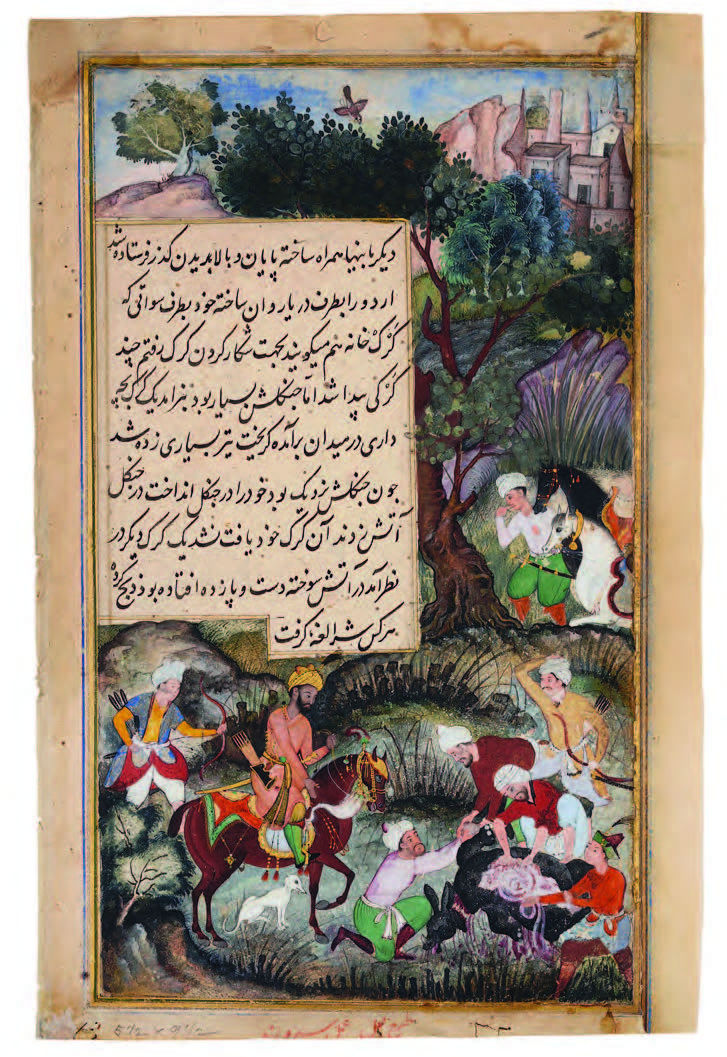 دیگر با بنیها همراه ساخته پایان و بالا بدیدن گذر فرستاده شد
اردو را بطرف دریا روان ساخته خود بطرف سواتی که
کرک خانه هم میکویند بجهت شکار کردن کرک رفتم چند
کرکی پیدا شد اما جنکلش بسیار بود بنرامد یک کرک بچه
داری در میدان برآمده کریخت تیر بسیاری زده شد
جون جنکلش نزدیک بود خود را در جنکل انداخت در جنکل
آتش زدند آن کرک خود یافت نشد یک کرک دیگر در
نظر آمد در آتش سوخته دست و پا زده افتاده بود ذبح کرده
هر کس شرالغه گرفت
5 1/2 x 9 1/2